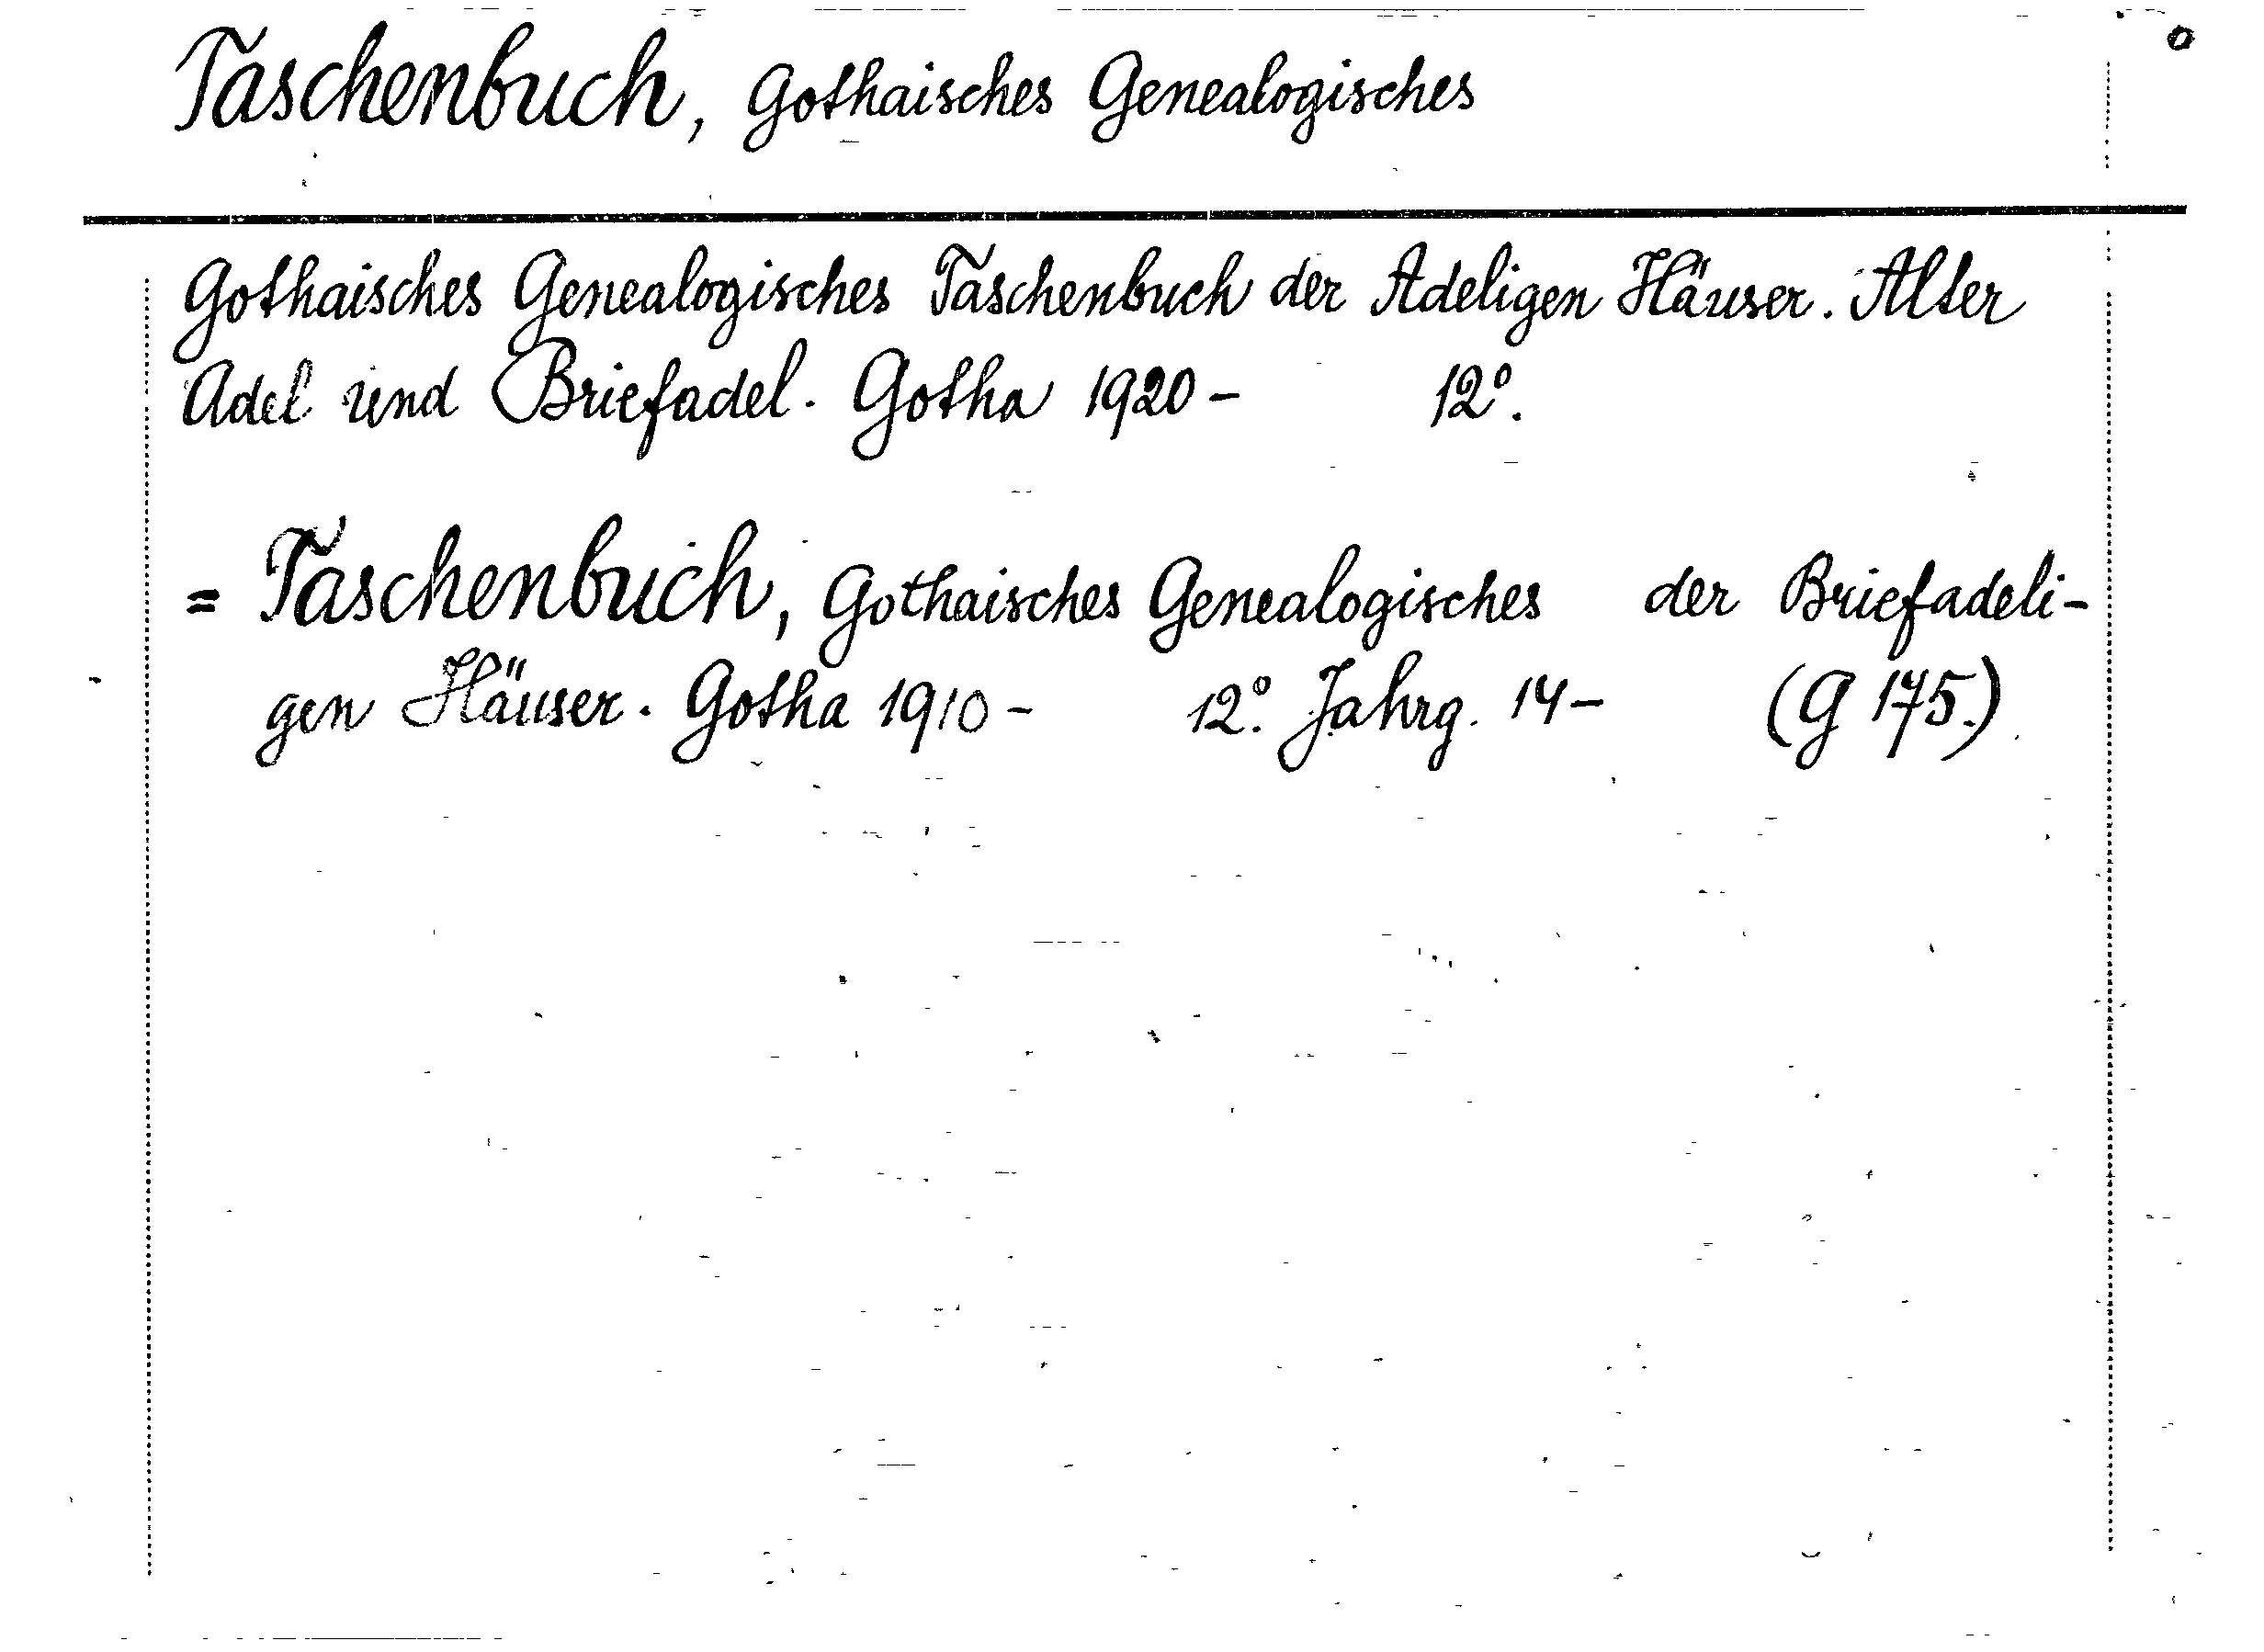 Taschenbuch, Gothaisches Genealogisches
Gothaisches Genealogisches Taschenbuch der Adeligen Häuser. Alter
Adel und Briefadel. Gotha 1920- 12°.
= Taschenbuch, Gothaisches Genealogisches der Briefadeli-
gen Häuser. Gotha 1910- 12°. Jahrg. 14- (G 175.)